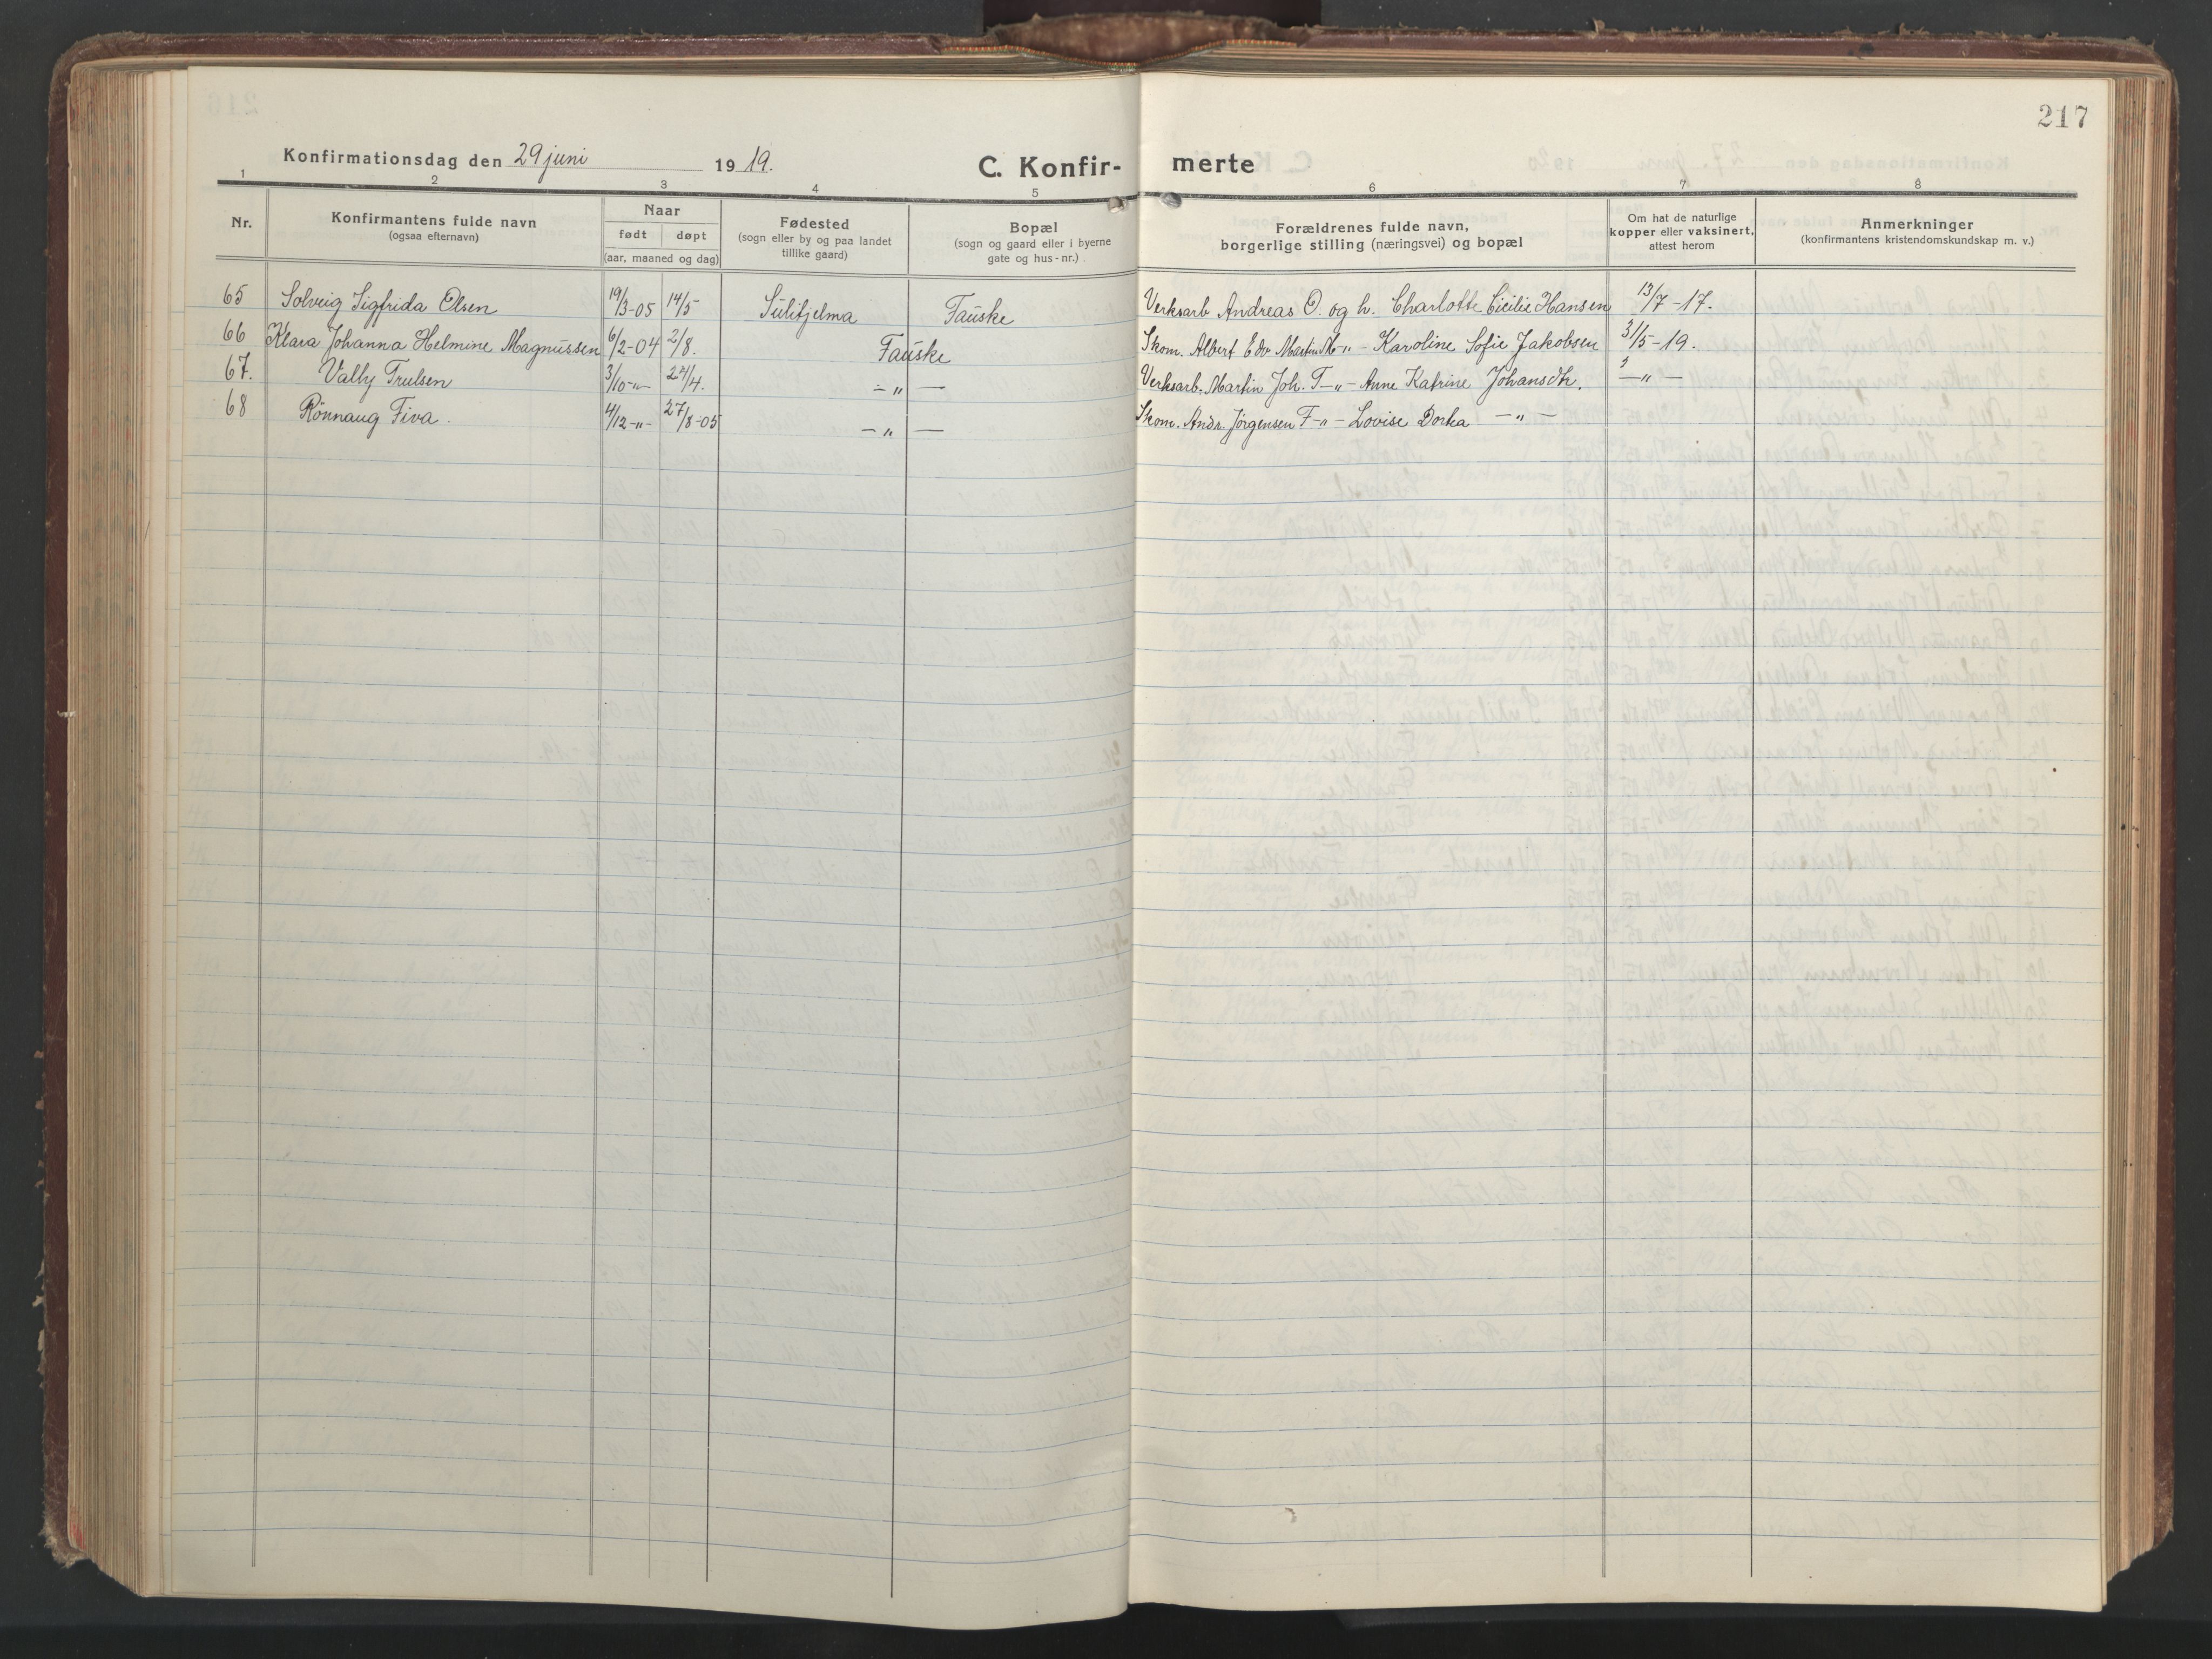 217
Konfirmationsdag den 29 juni 1919.
C. Konfir- merte
1 2 3 4 5 6 7 8
Nr.
Konfirmantens fulde navn
(ogsaa efternavn)
Naar
født døpt
(aar, maaned og dag)
Fødested
(sogn eller by og paa landet
tillike gaard)
Bopæl
(sogn og gaard eller i byerne
gate og hus-nr.)
Forældrenes fulde navn,
borgerlige stilling (næringsvei) og bopæl
Om hat de naturlige
kopper eller vaksinert,
attest herom
Anmerkninger
(konfirmantens kristendomskundskap m. v.)
65 Solveig Sigfrida Olsen 19/3-05 14/5 Sulitjelma Fauske Verksarb Andreas O. og h. Charlotte Cicilie Hansen 13/7-17.
66 Klara Johanna Helmine Magnussen 6/2-04 2/8. Fauske Skom. Albert Edv Martin M-"- Karoline Sofie Jakobsen 31/5-19.
67. Vally Trulsen 3/10-"- 24/4. -"- Verksarb. Martin Joh. T-"- Anne Katrine Johansdtr. -"-
68 Rönnaug Fiva. 4/12-"- 27/8-05 -"- Skom. Andr. Jörgensen F-"- Lovise Dorka -"-